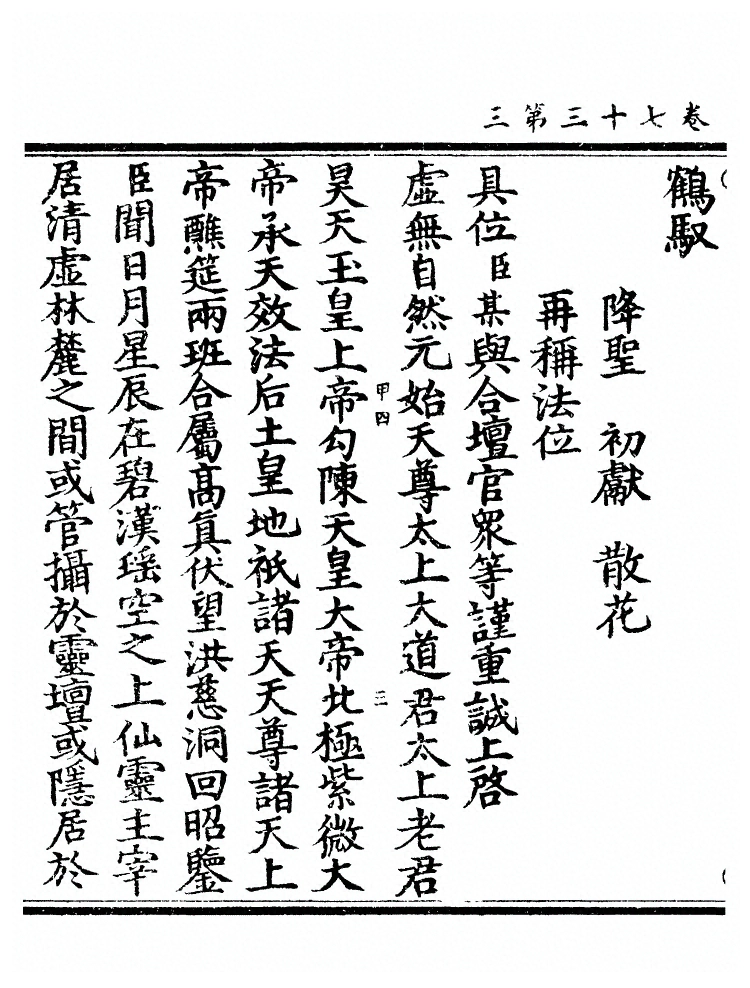 卷七十三第三
鶴馭
降聖　初獻　散花
再稱法位
具位臣某與合壇官衆等謹重誠上啓
虛無自然元始天尊太上大道君太上老君
昊天玉皇上帝勾陳天皇大帝北極紫微大
甲四
三
帝承天效法后土皇地祇諸天天尊諸天上
帝醮筵兩班合屬高眞伏望洪慈洞回昭鑒
臣聞日月星辰在碧漢瑶空之上仙靈主宰
居清虛林麓之間或管攝於靈壇或隱居於